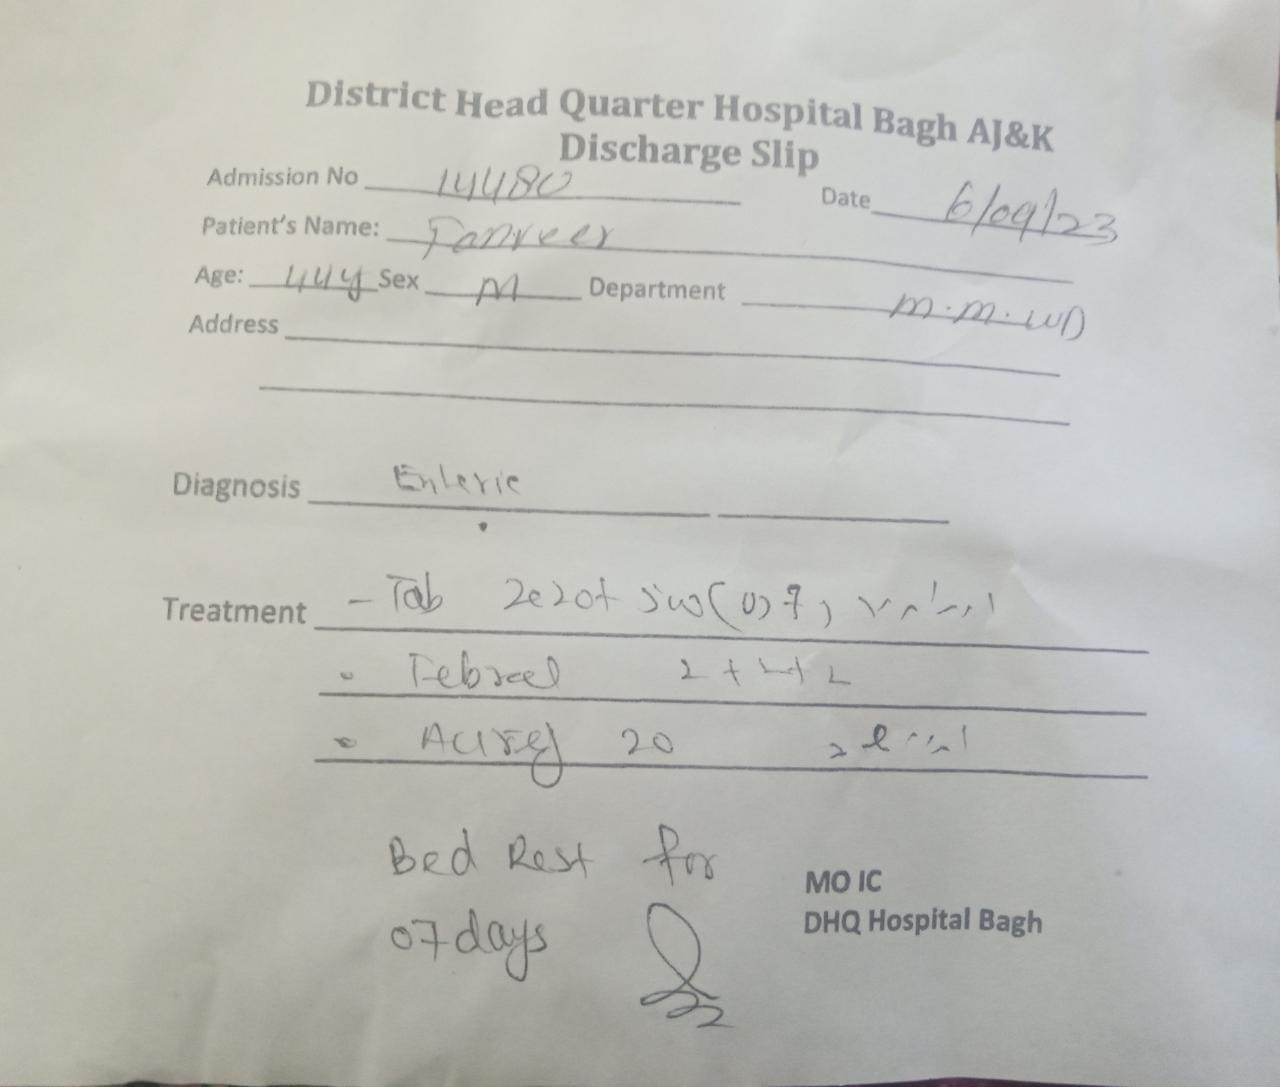 District Head Quarter Hospital Bagh AJ&K
Discharge Slip
Admission No 14480 Date 6/09/23
Patient's Name: Tanveer
Age: 44y Sex M Department M.M.WD
Address
Diagnosis Enteric
Treatment - Tab
2 + 2 + 2
20
Bed Rest for
07 days
MO IC
DHQ Hospital Bagh